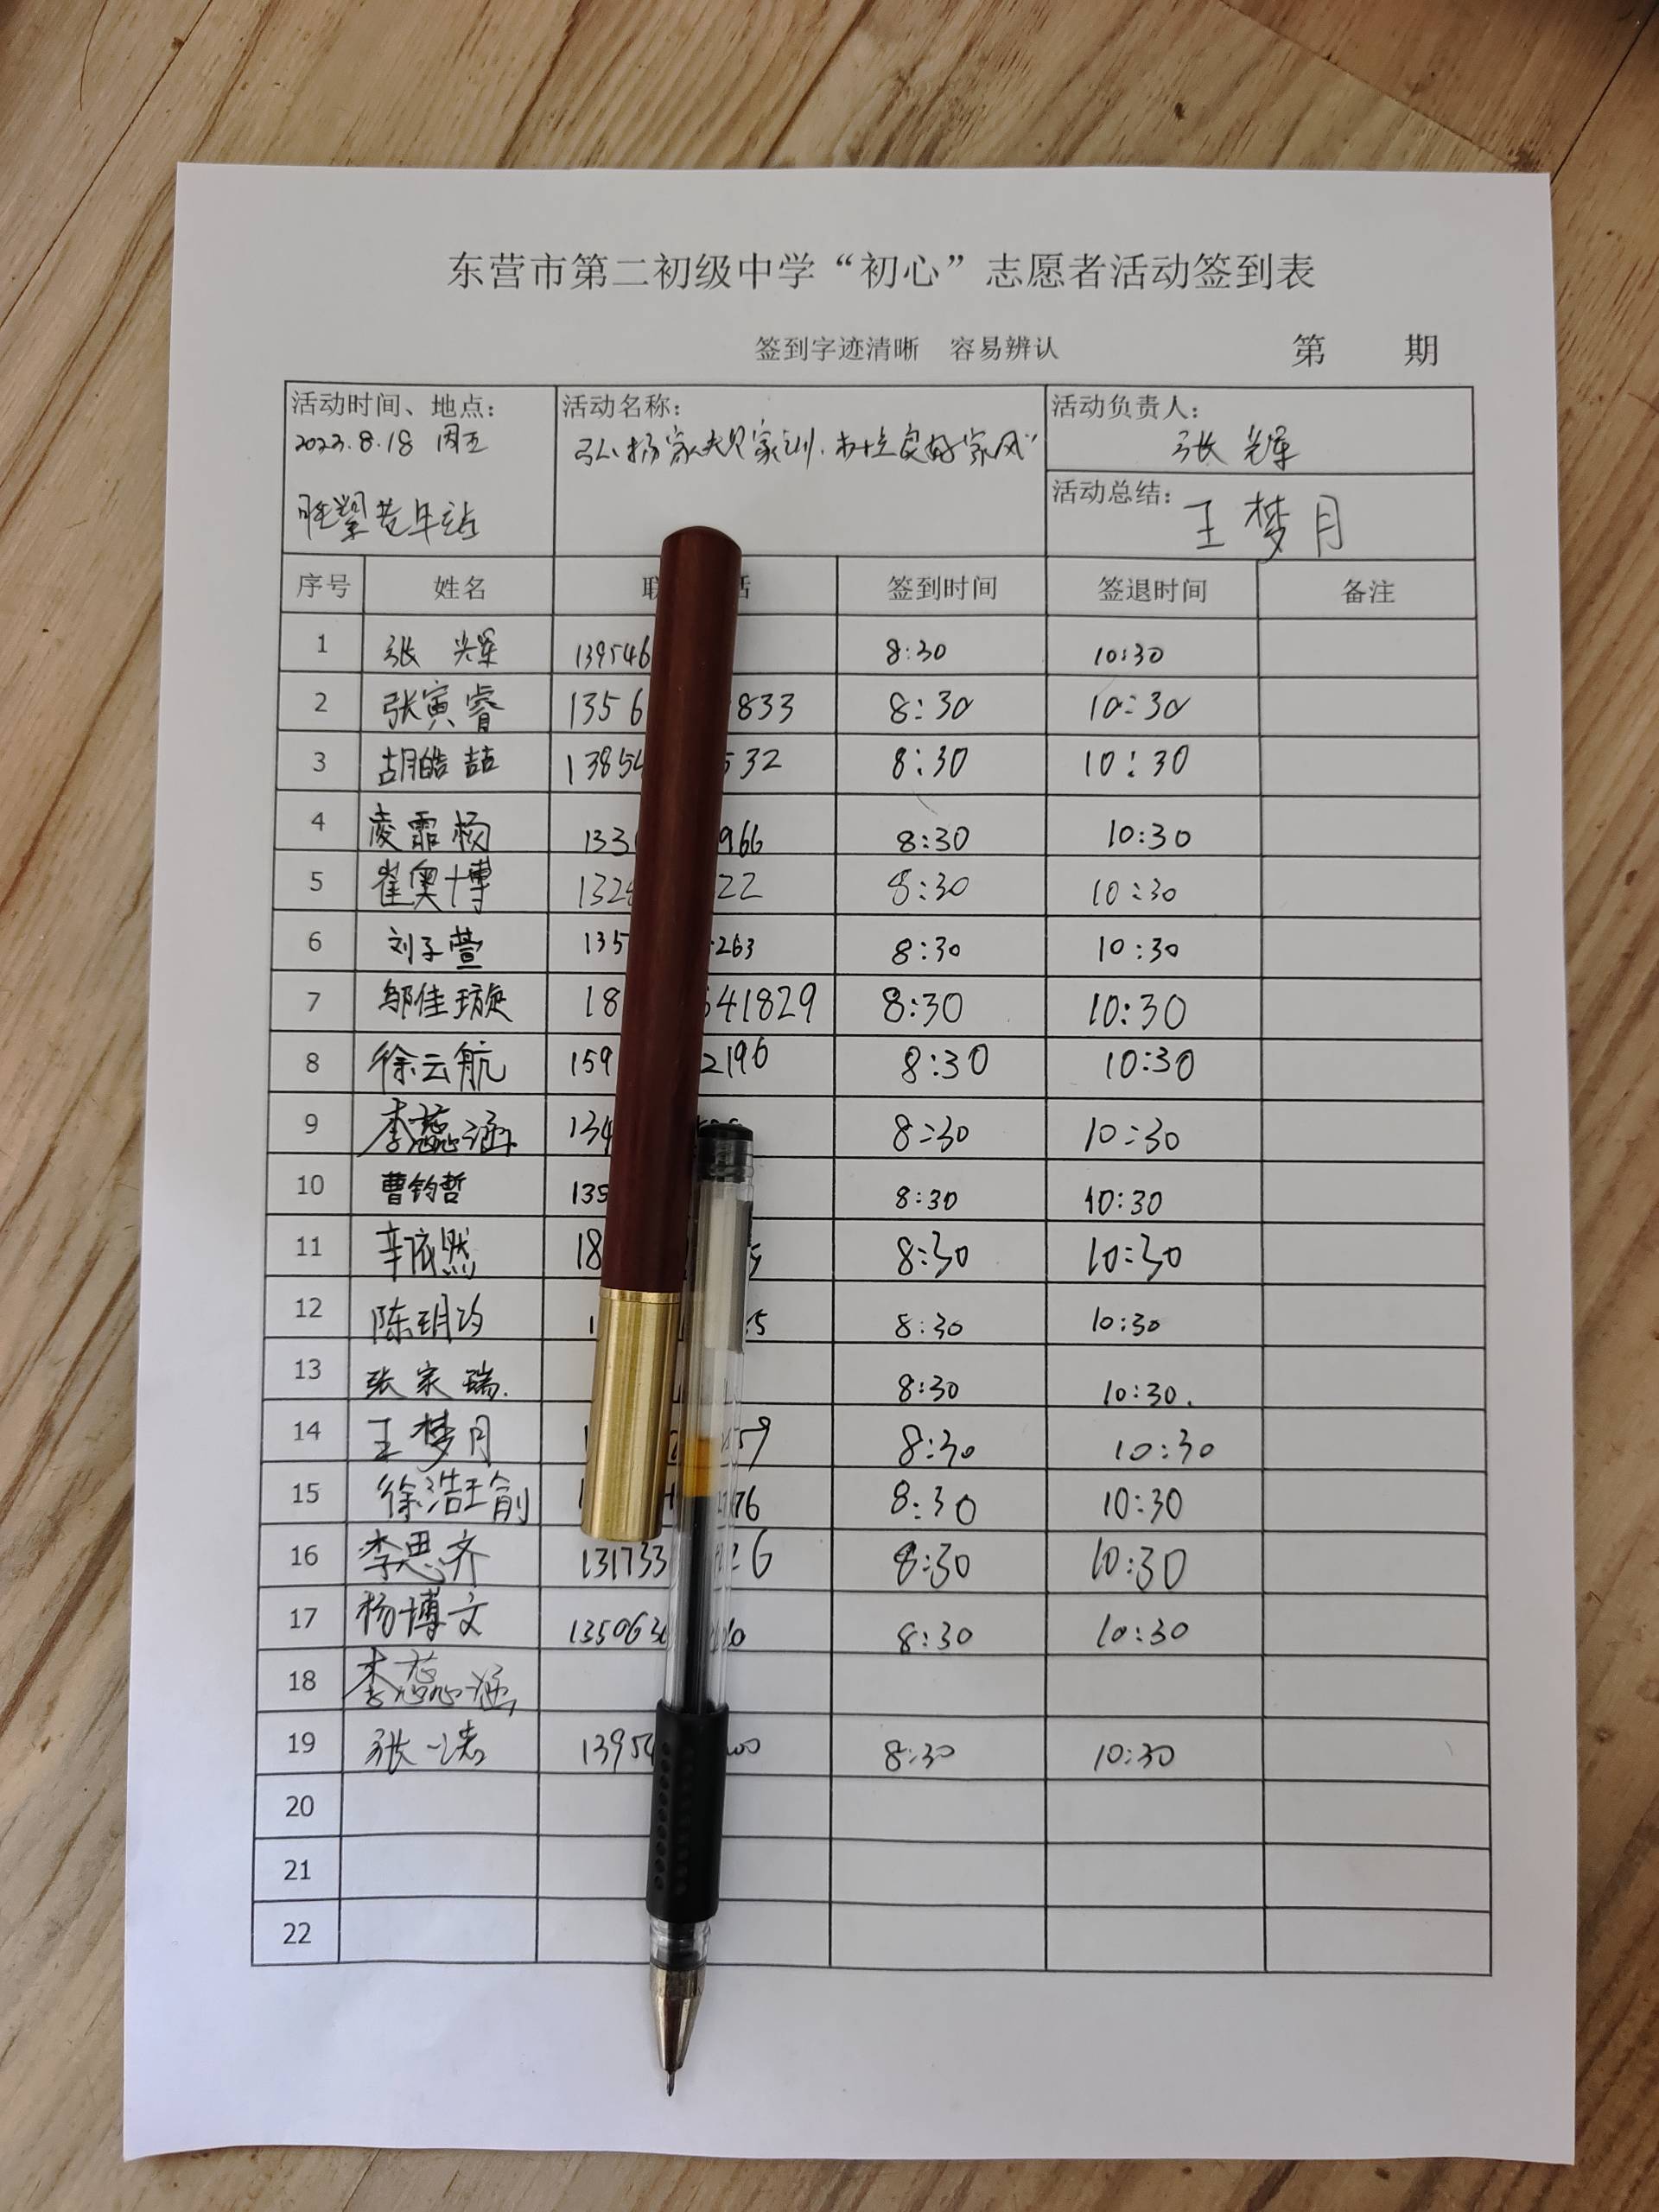 东营市第二初级中学“初心”志愿者活动签到表
签到字迹清晰 容易辨认 第 期
活动时间、地点: 活动名称: 活动负责人:
2023.8.18 周五 弘扬家规家训.树立良好家风 张辉
活动总结: 王梦月
序号 姓名 联 话 签到时间 签退时间 备注
1 张辉 139546 8:30 10:30
2 张寅睿 1356 833 8:30 10:30
3 胡皓喆 13854 532 8:30 10:30
4 凌霜杨 133 966 8:30 10:30
5 崔奥博 132 22 8:30 10:30
6 刘子萱 135 263 8:30 10:30
7 邹佳璇 18 541829 8:30 10:30
8 徐云航 159 2196 8:30 10:30
9 李蕊涵 134 8:30 10:30
10 曹钧哲 135 8:30 10:30
11 辛依然 18 5 8:30 10:30
12 陈玥均 1 5 8:30 10:30
13 张家瑞. 8:30 10:30.
14 王梦月 1 59 8:30 10:30
15 徐浩瑜 1 76 8:30 10:30
16 李思齐 131733 26 8:30 10:30
17 杨博文 135063 0 8:30 10:30
18 李蕊涵
19 张一诺 1395 00 8:30 10:30
20
21
22